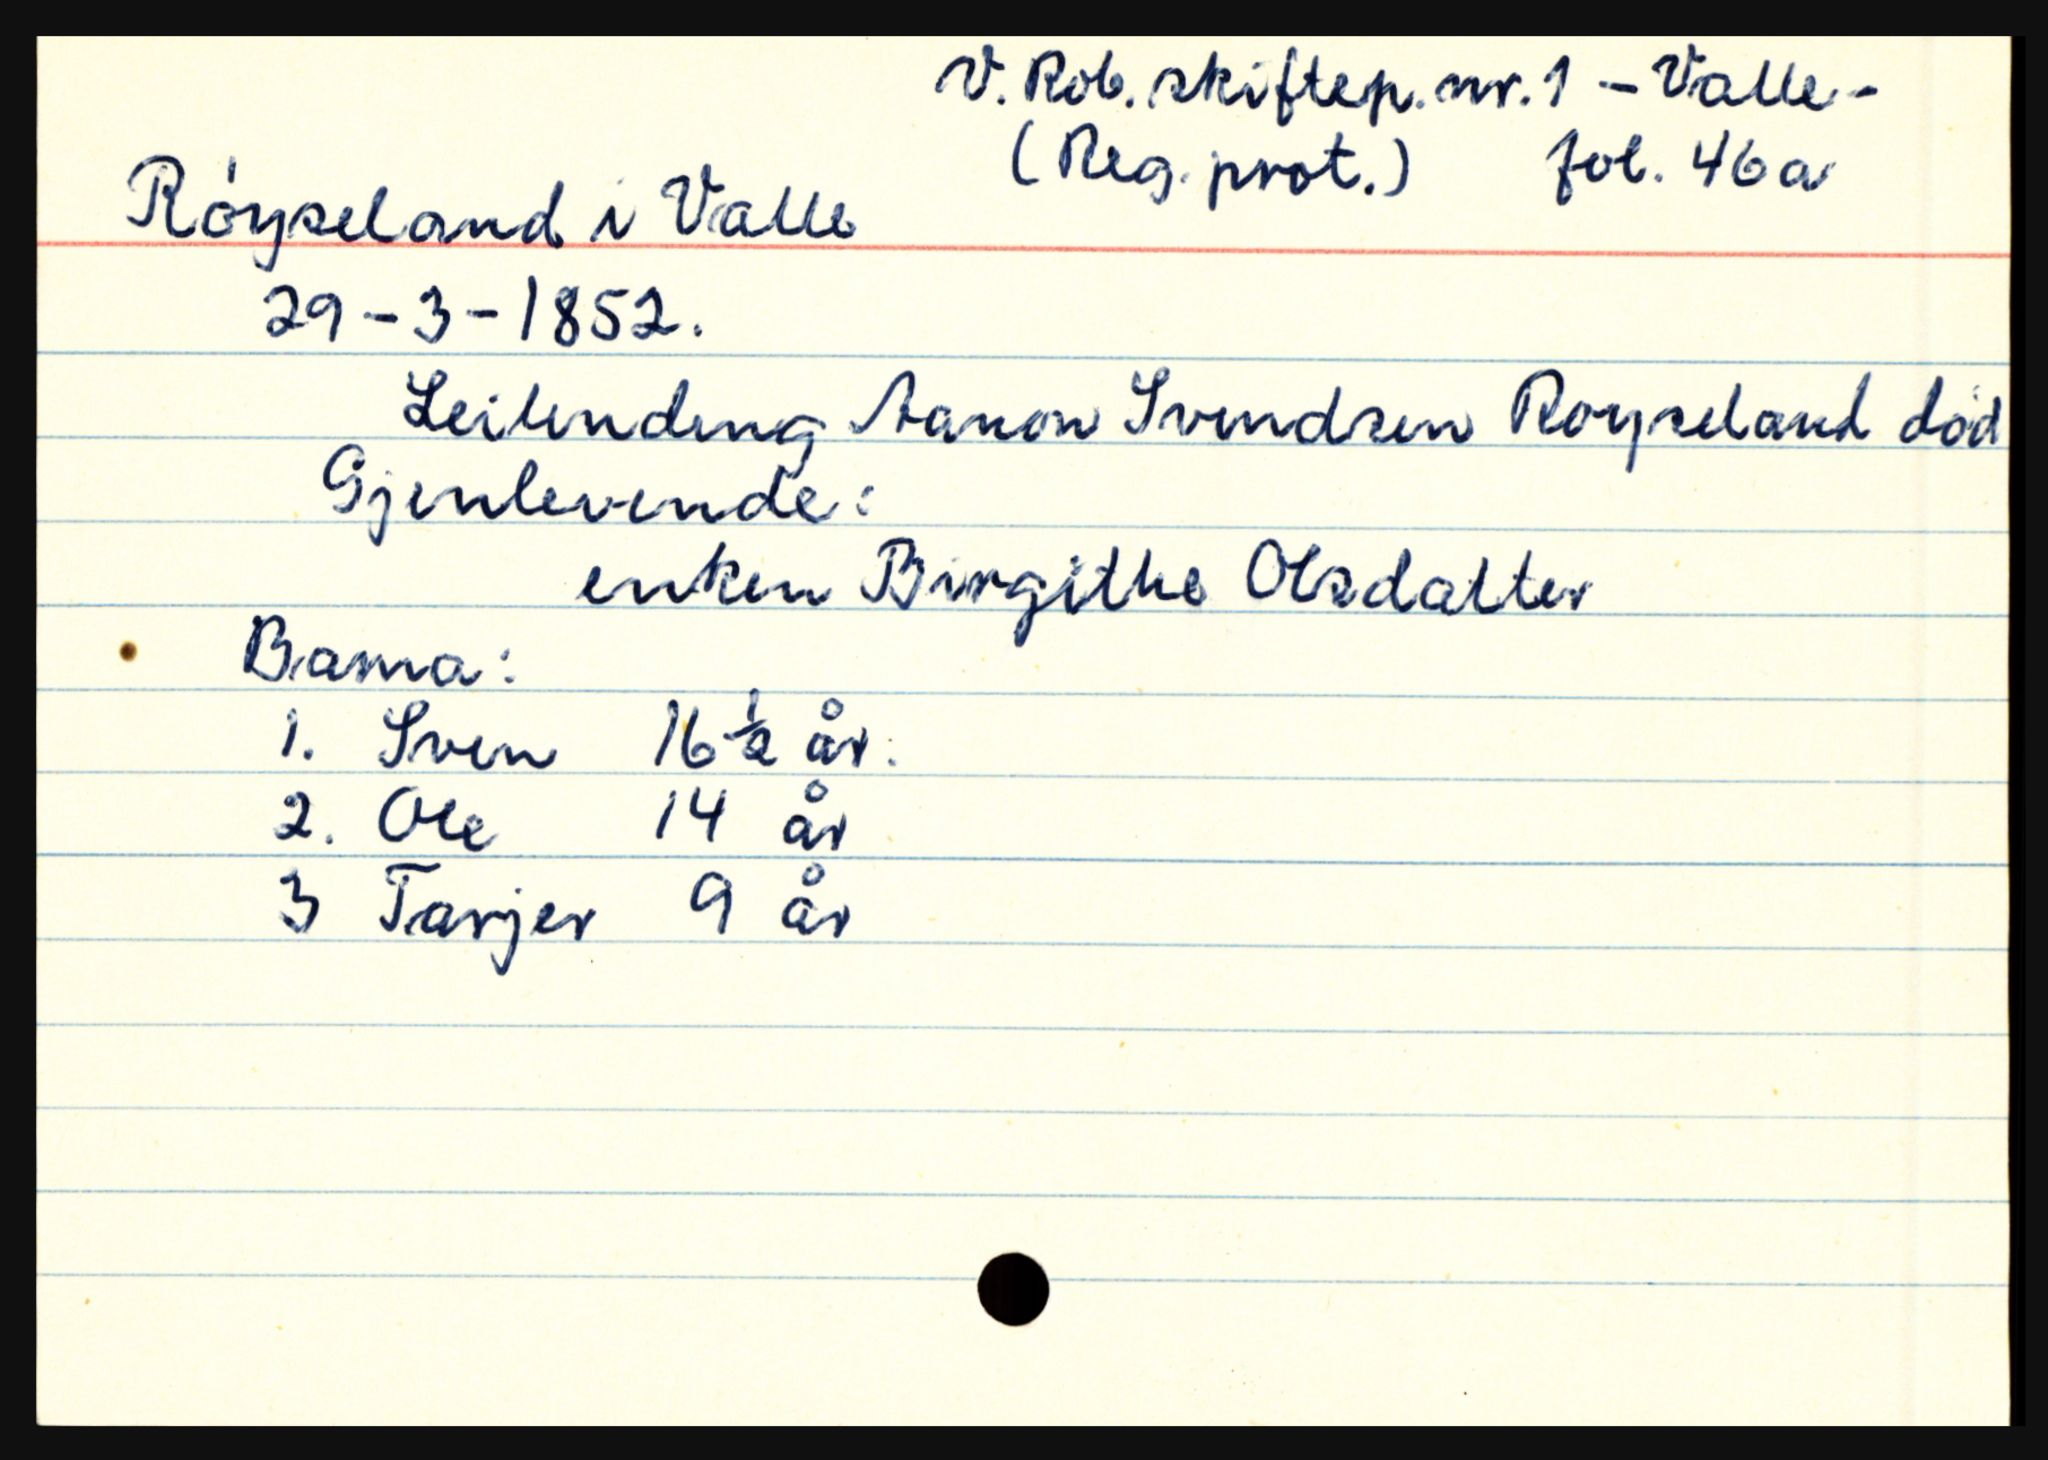 V. Rob. skiftep. nr. 1 - Valle -
(Reg. prot.) fol. 46a
Røyseland i Valle
29-3-1852.
Leilending Aanon Svendsen Røyseland død
Gjenlevende:
enken Birgithe Olsdatter
Barna:
1. Sven 16 1/2 år.
2. Ole 14 år
3 Tarjer 9 år